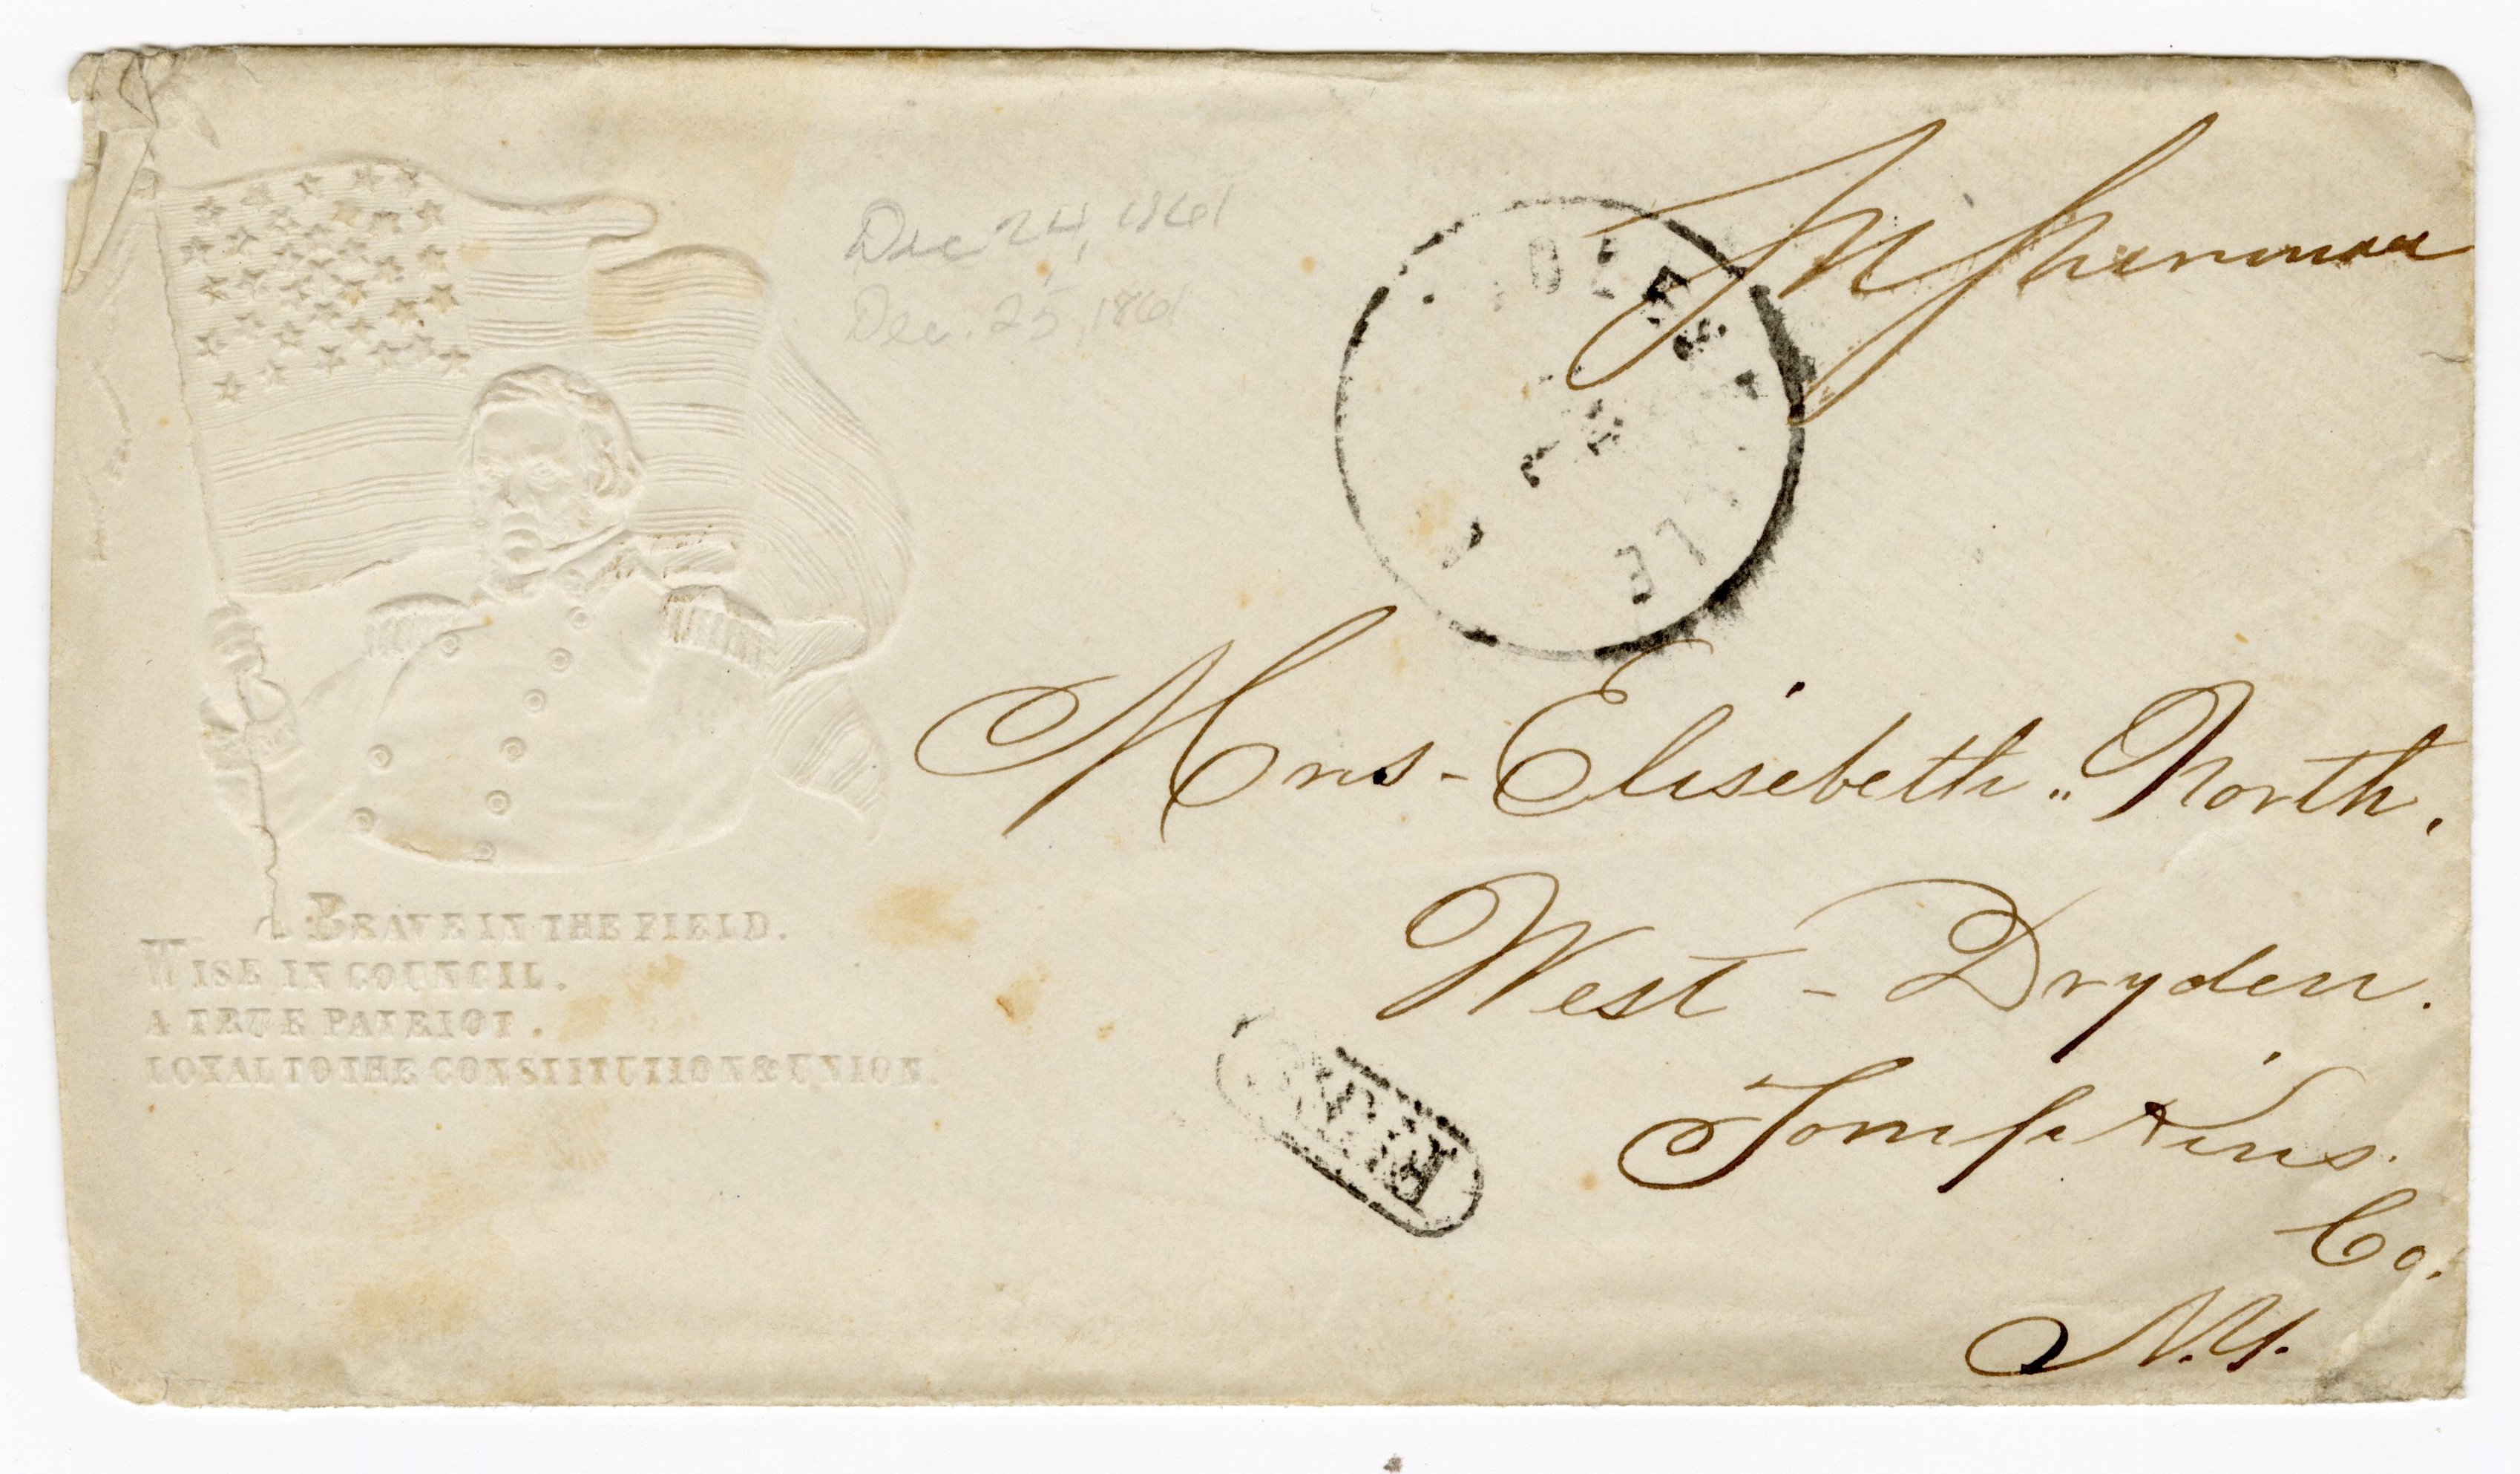 Dec 24, 1861
Dec. 25, 1861
BRAVE IN THE FIELD.
WISE IN COUNCIL.
A TRUE PATRIOT.
LOYAL TO THE CONSTITUTION & UNION.
Mrs - Elisebeth " North.
West - Dryden.
Tompkins.
Co.
N.Y.